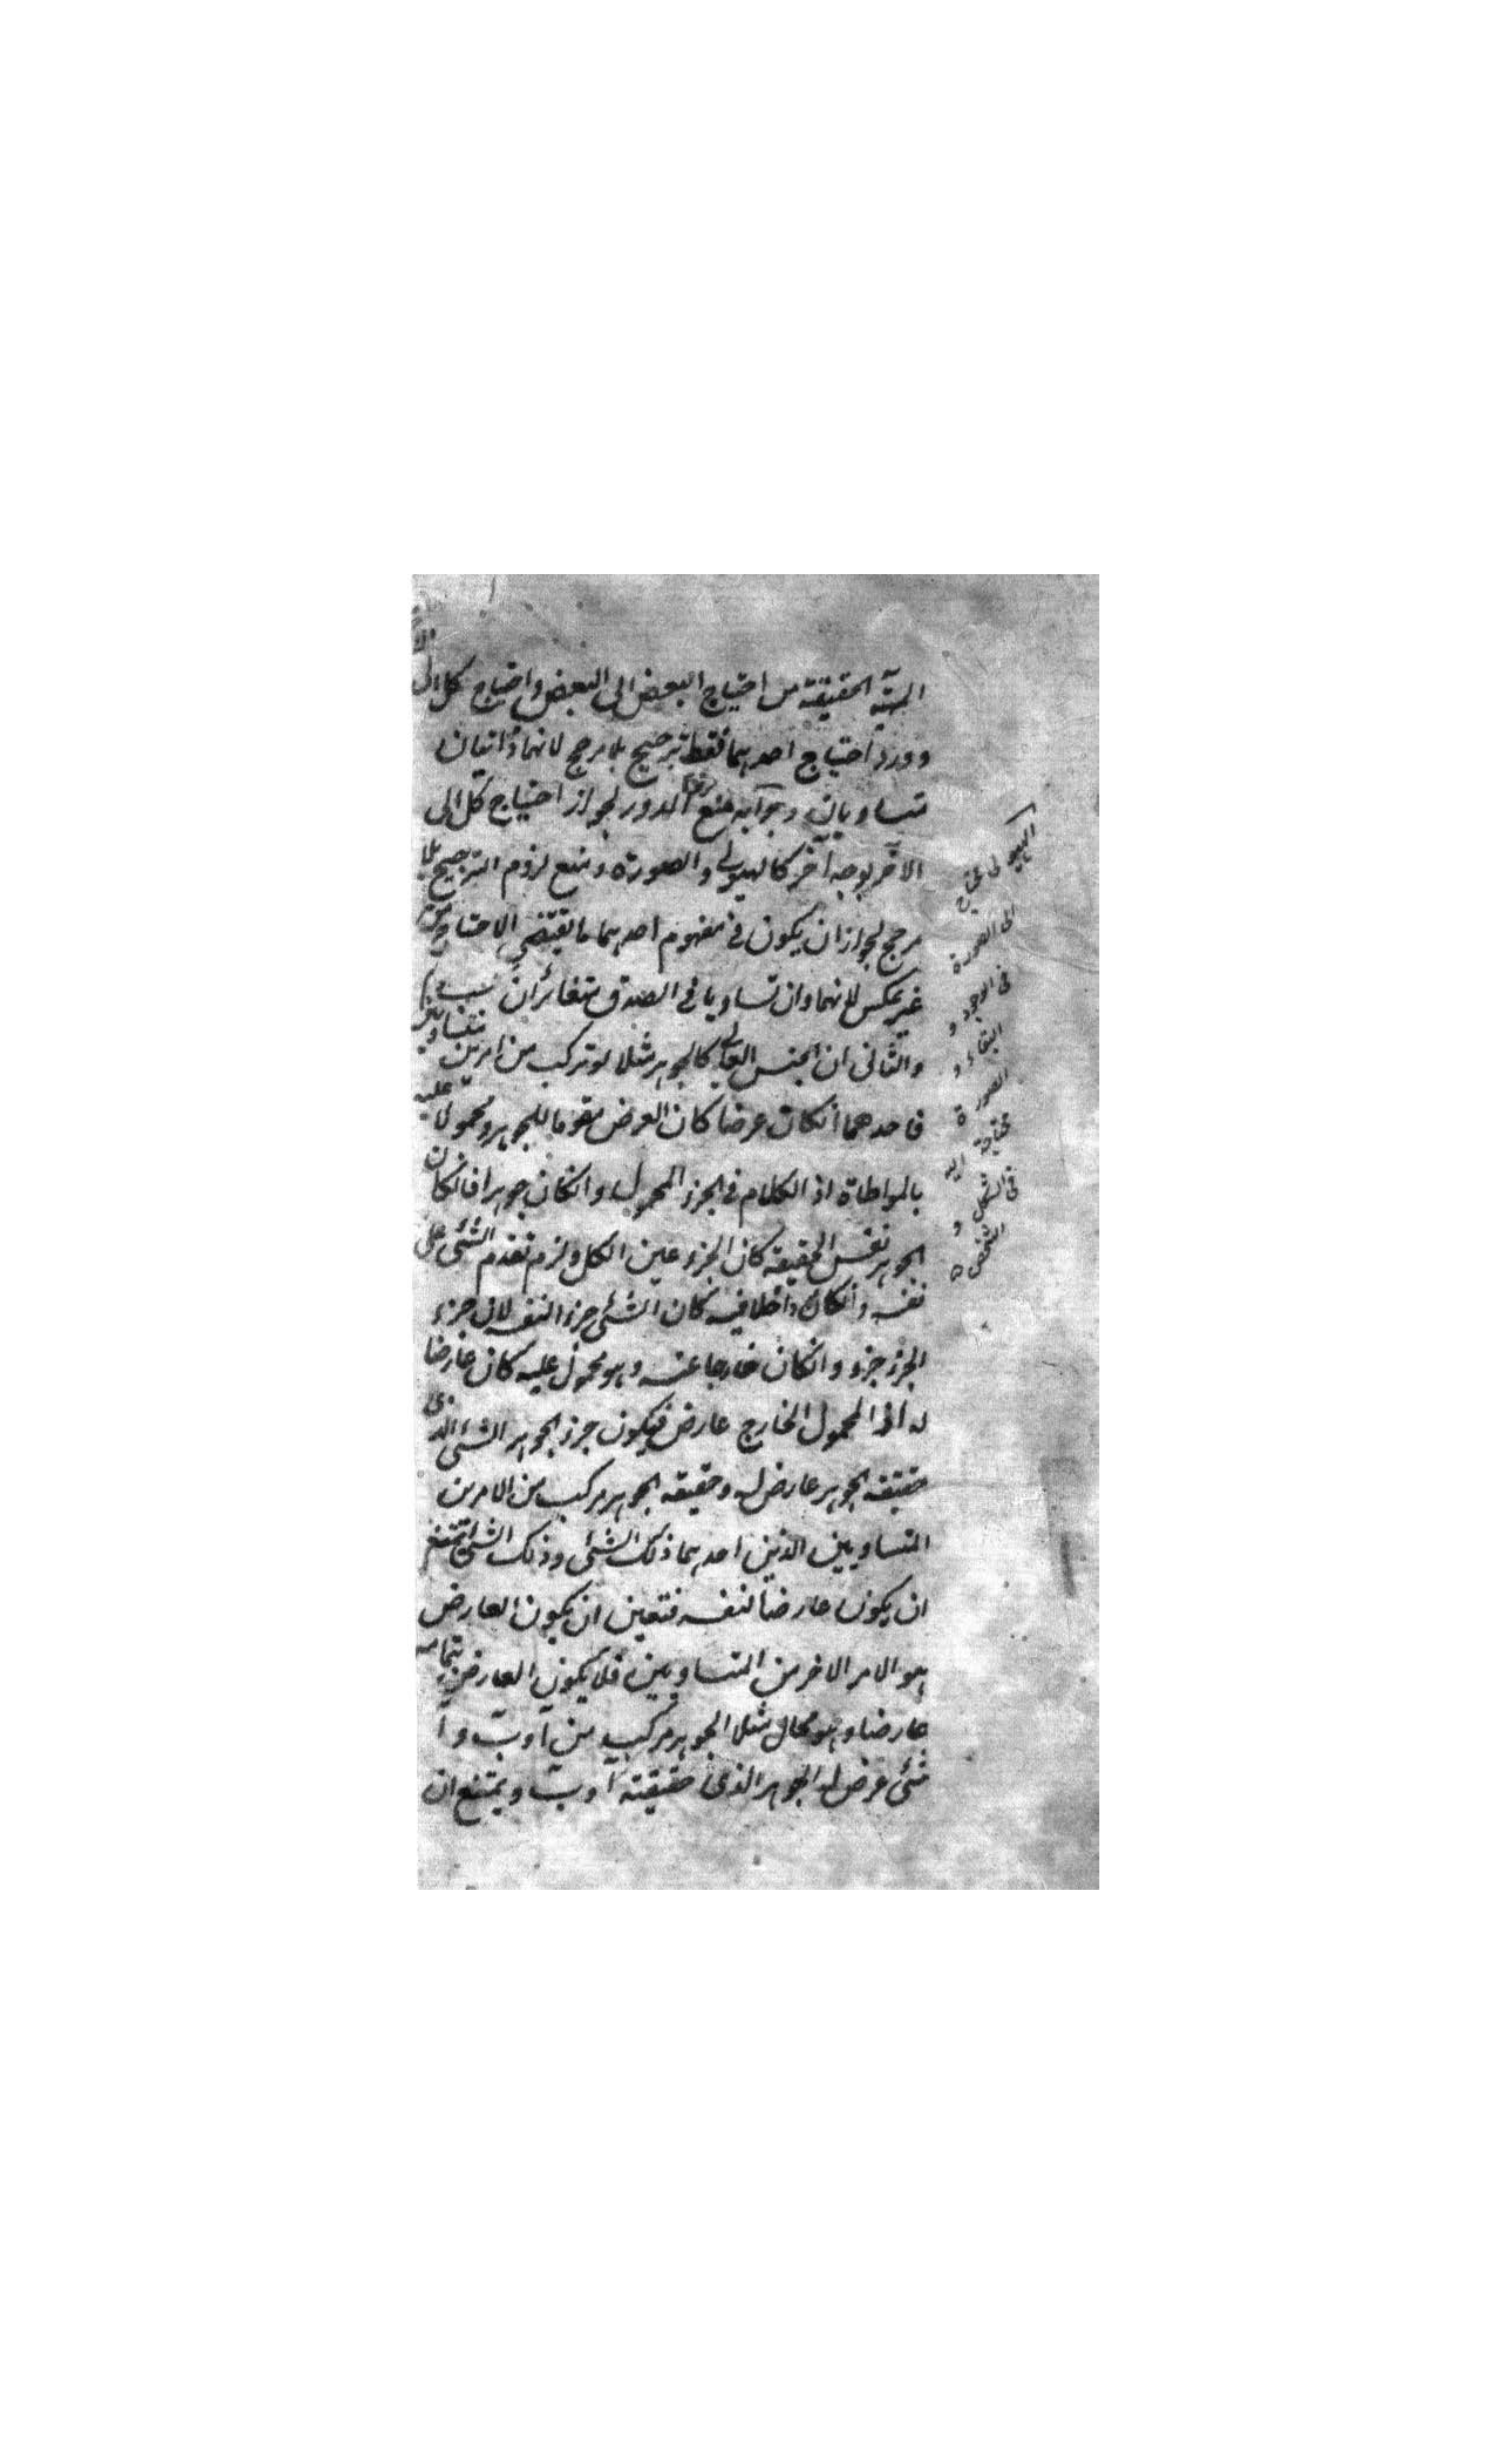 المهية الحقيقية من احتياج البعض الى البعض واحتياج كل الى
دور واحتياج احدهما فقط ترجيح بلا مرجح لانهما ذاتيان
متساويان وجوابه منع لزوم الدور لجواز احتياج كل الى
الاخر بوجه آخر كالهيولى والصورة ومنع لزوم الترجيح بلا
مرجح لجواز ان يكون في مفهوم احدهما ما يقتضي الاحتياج من
غير عكس لانهما وان تساويا في الصدق متغائران
والثاني ان الجنس العالي كالجوهر مثلا لو تركب من امرين متساويين
فاحدهما انكان عرضا كان العرض مقوما للجوهر ومحمولا عليه
بالمواطاة اذ الكلام في الجزء المحمول وانكان جوهرا فانكان
الجوهر نفس الحقيقة كان الجزء عين الكل ولزم تقدم الشئ على
نفسه وانكان داخلا فيه كان الشئ جزء النفسه لان جزء
الجزء جزء وانكان خارجا عنه وهو محمول عليه كان عارضا
له اذ المحمول الخارج عارض فيكون جزء الجوهر الشئ الذى
حقيقة الجوهر عارض له وحقيقة الجوهر مركب من الامرين
المتساويين الذين احدهما ذلك الشئ وذلك الشئ يمتنع
ان يكون عارضا لنفسه فتعين ان يكون العارض
هو الامر الاخر من المتساويين فلا يكون العارض بتمامه
عارضا وهو محال مثلا الجوهر مركب من آ وب و آ
شئ عرض له الجوهر الذى حقيقته آ وب ويمتنع ان
الهيولى محتاج
الى الصورة
في الوجود و
البقاء و
الصورة
محتاجة اليه
في الشكل و
التشخص